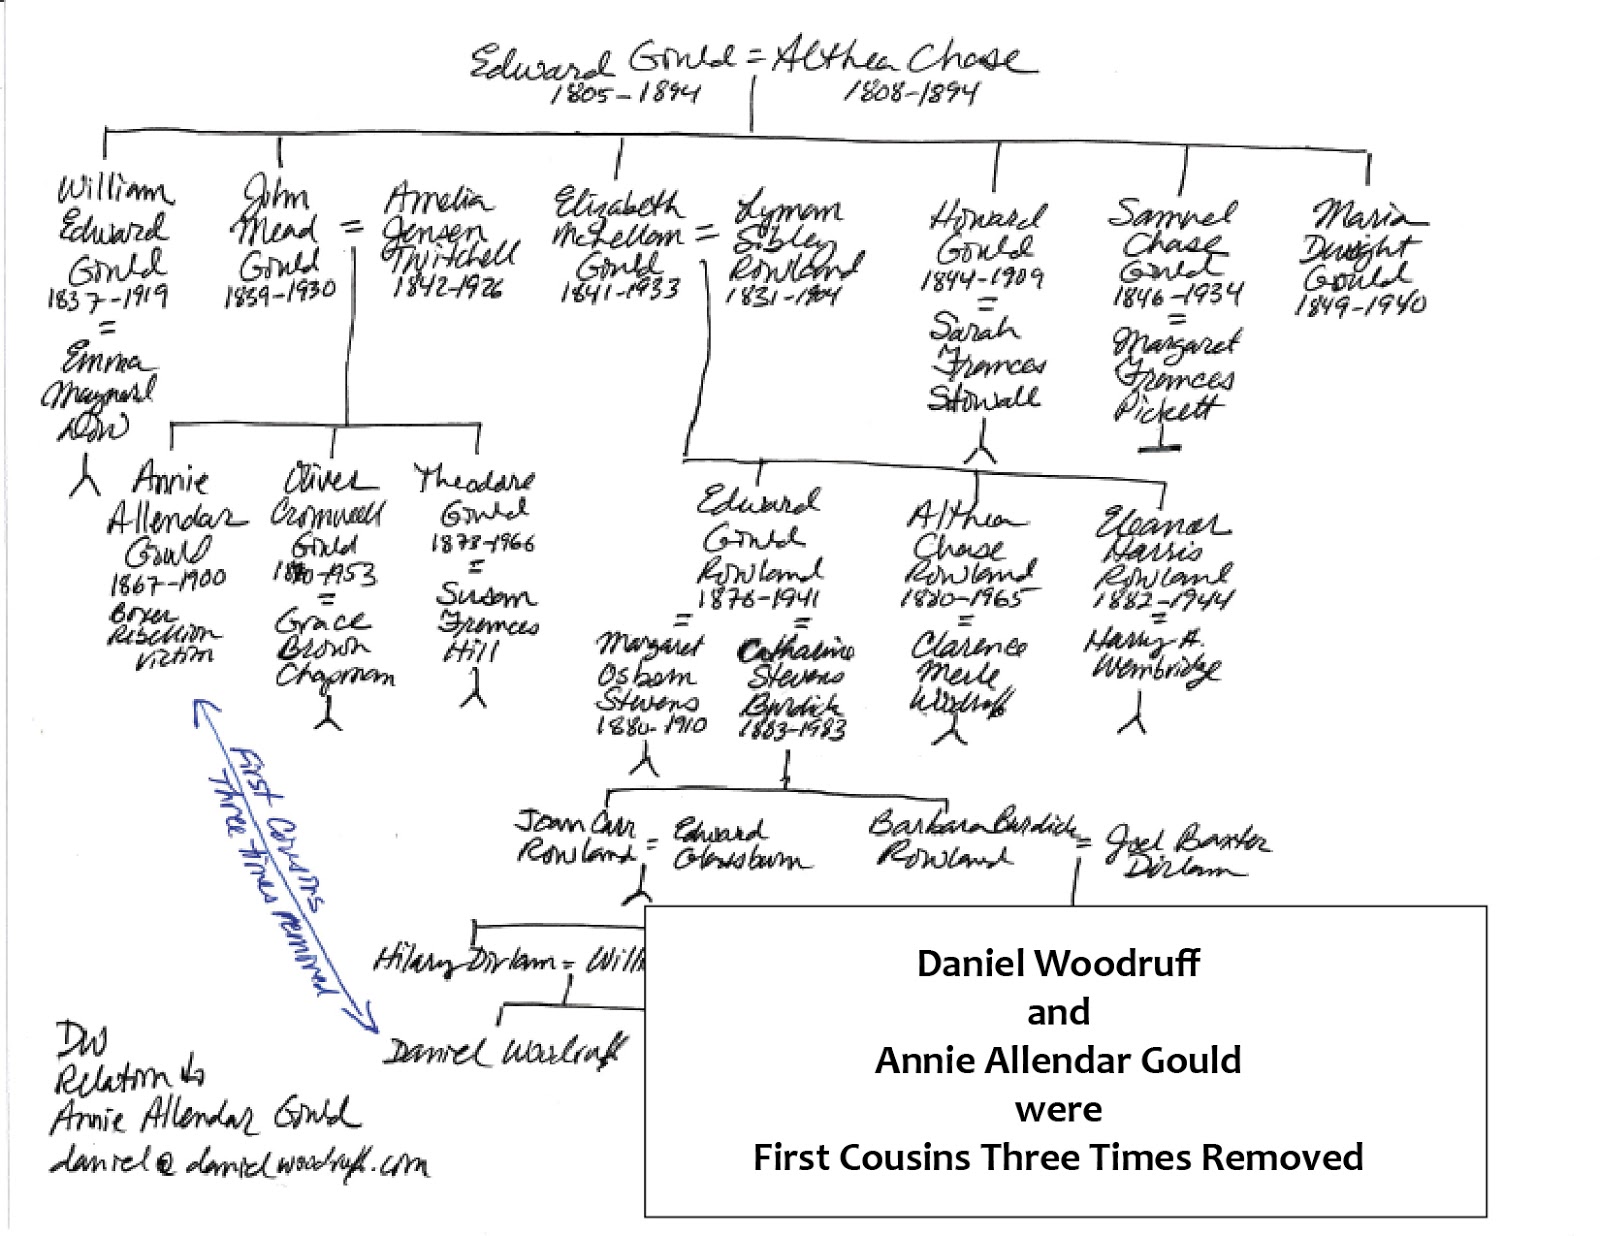 Edward Gould = Althea Chase
1805-1894 1808-1894
William
Edward
Gould
1837-1919
=
Emma
Maynard
Dow
John
Mead =
Gould
1839-1930
Amelia
Jensen
Twitchell
1842-1926
Elizabeth
McLellan =
Gould
1841-1933
Lyman
Sibley
Rowland
1831-1904
Howard
Gould
1844-1909
=
Sarah
Frances
Stowall
Samuel
Chase
Gould
1846-1934
=
Margaret
Frances
Pickett
Maria
Dwight
Gould
1849-1940
Annie
Allendar
Gould
1867-1900
Boxer
Rebellion
Victim
Oliver
Cromwell
Gould
-1953
=
Grace
Brown
Chapman
Theodore
Gould
1878-1966
=
Susan
Frances
Hill
Edward
Gould
Rowland
1876-1941
=
Margaret
Osborn
Stevens
1880-1910
=
Catharine
Stevens
Burdick
1883-1983
Althea
Chase
Rowland
1880-1965
=
Clarence
Merle
Woodruff
Eleanor
Harris
Rowland
1882-1944
=
Harry A.
Wembridge
Joan Carr
Rowland =
Edward
Barbara Burdick
Rowland =
Joel Baxter
Dirlam
Hilary Dirlam = Will
Daniel Woodruff
First Cousins
Three times removed
DW
Relation to
Annie Allendar Gould
daniel@danielwoodruff.com
Daniel Woodruff
and
Annie Allendar Gould
were
First Cousins Three Times Removed